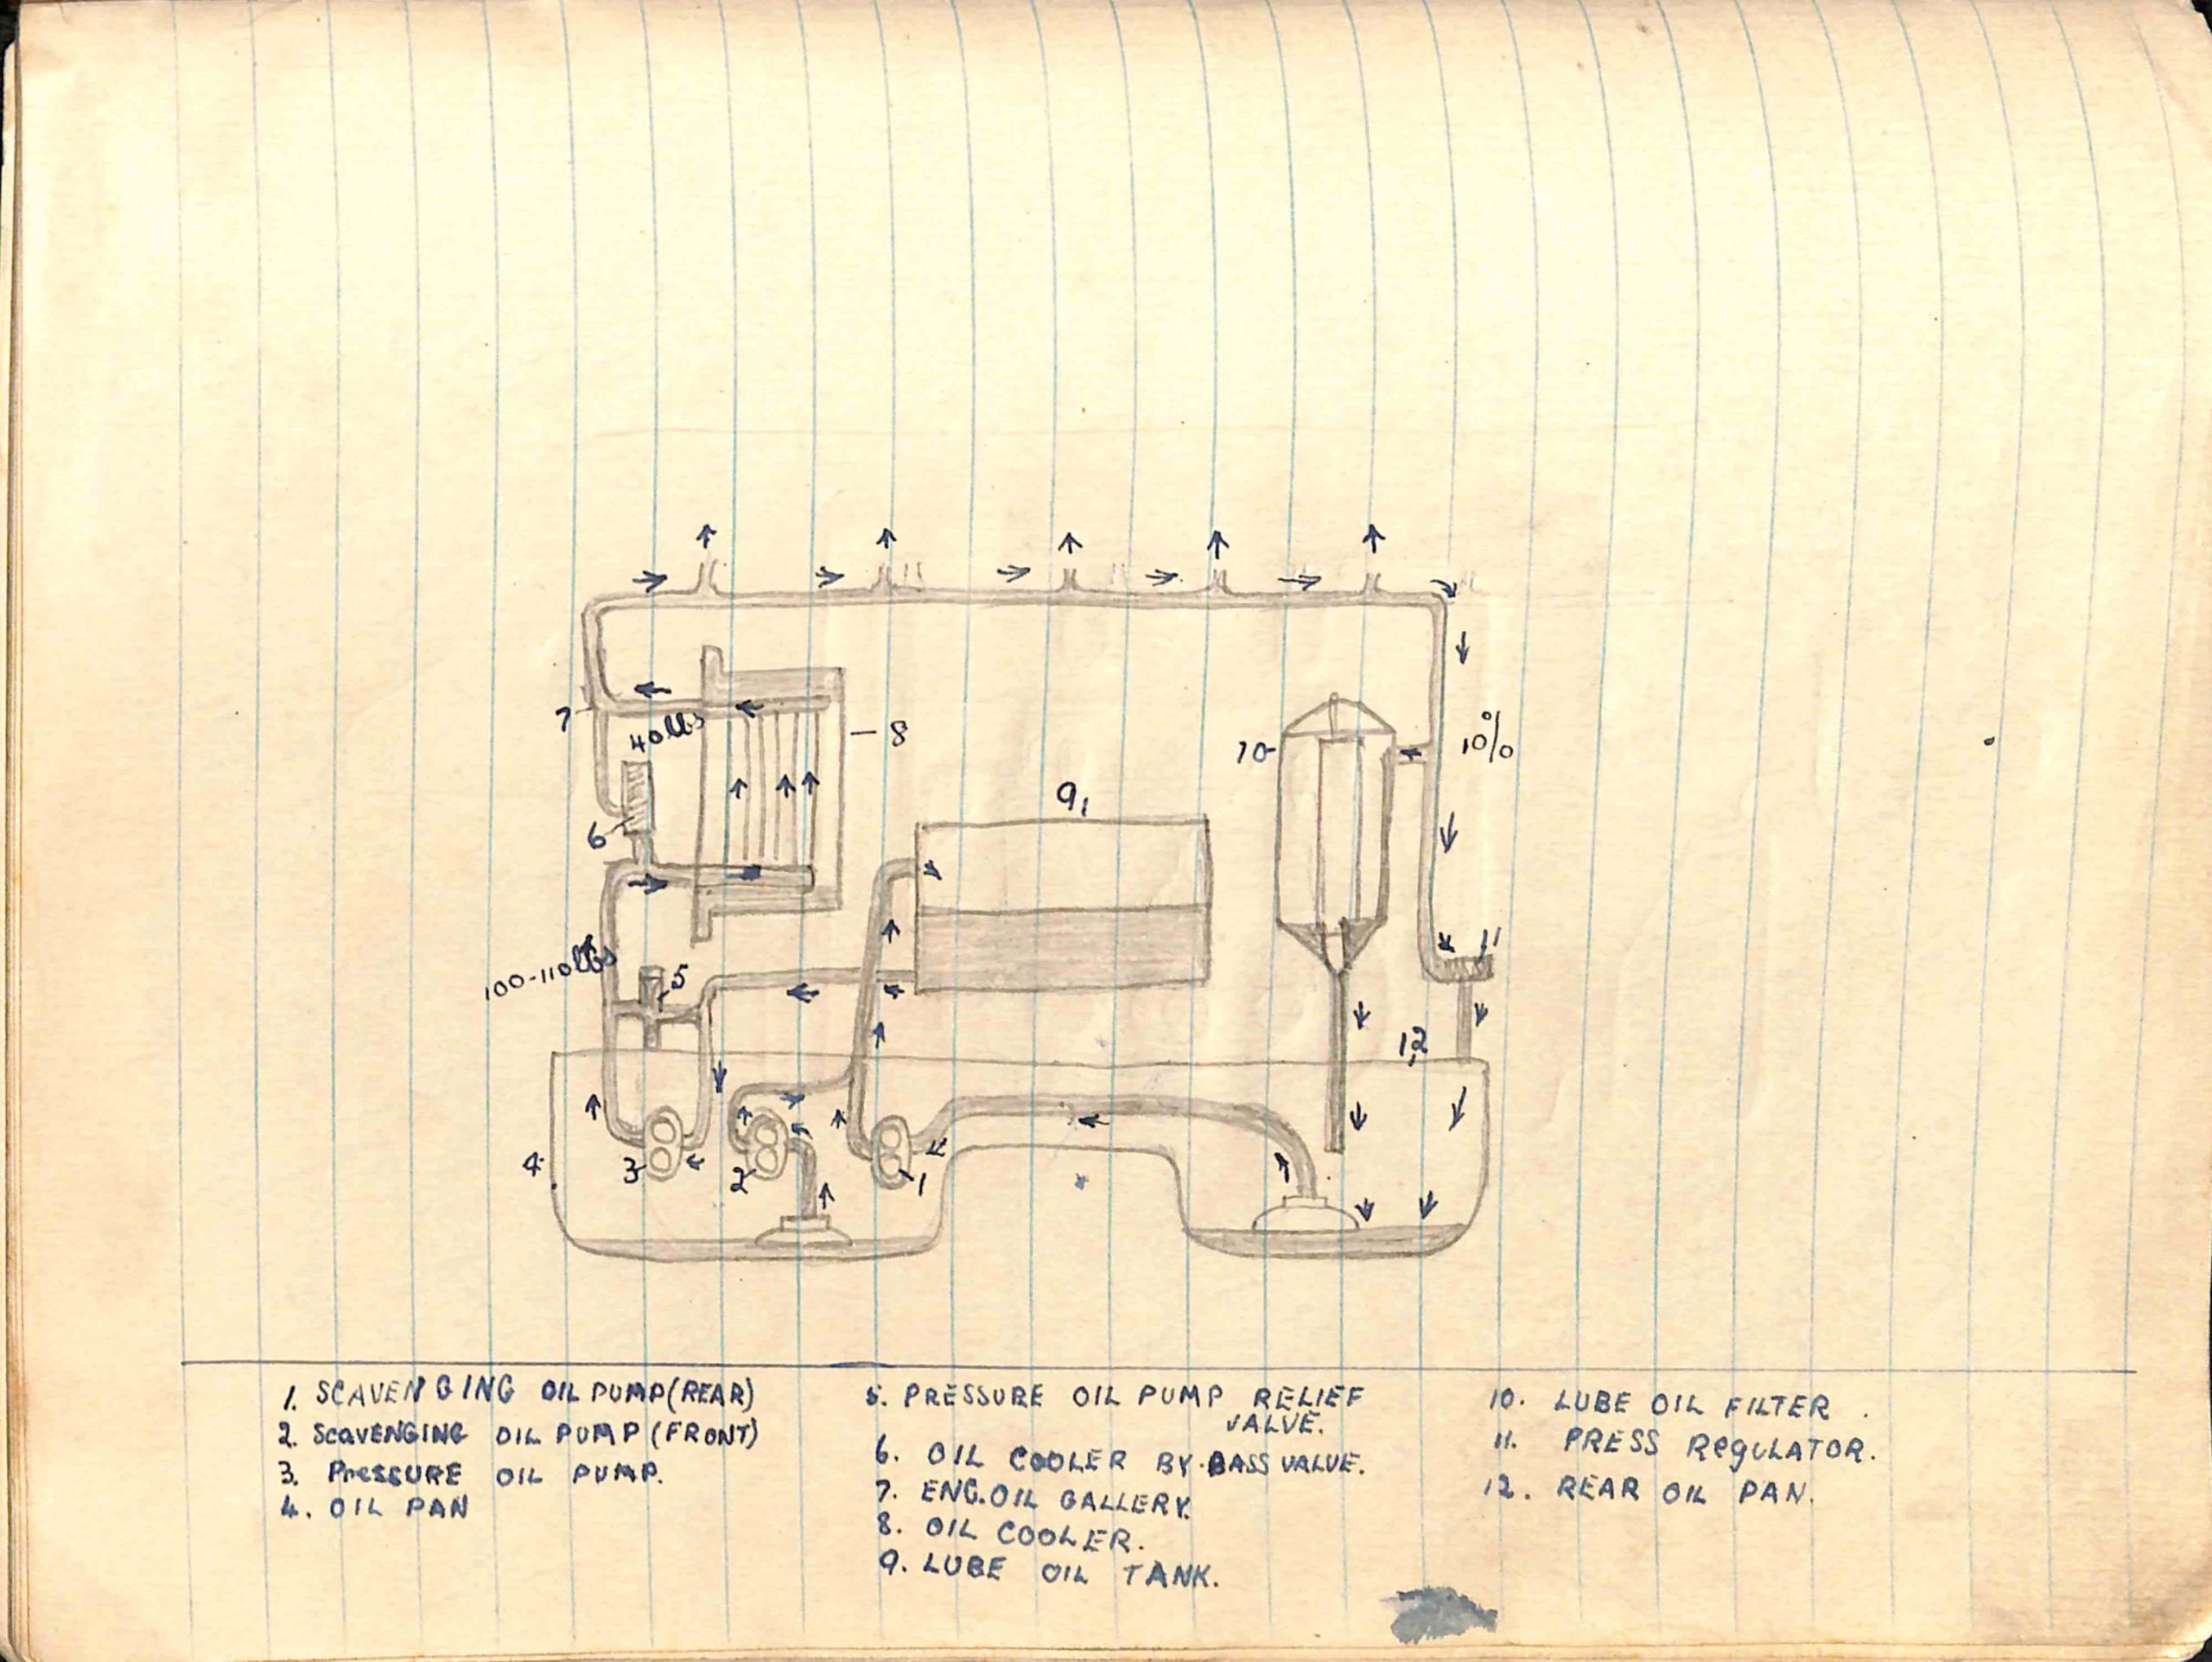 7
40lbs
8
10
10%
9,
6
100-110lbs
5
11
12,
4
3
2
1
1. SCAVENGING OIL PUMP (REAR)
2. SCAVENGING OIL PUMP (FRONT)
3. PRESSURE OIL PUMP.
4. OIL PAN
5. PRESSURE OIL PUMP RELIEF
VALVE.
6. OIL COOLER BY-BASS VALVE.
7. ENG.OIL GALLERY.
8. OIL COOLER.
9. LUBE OIL TANK.
10. LUBE OIL FILTER.
11. PRESS REGULATOR.
12. REAR OIL PAN.